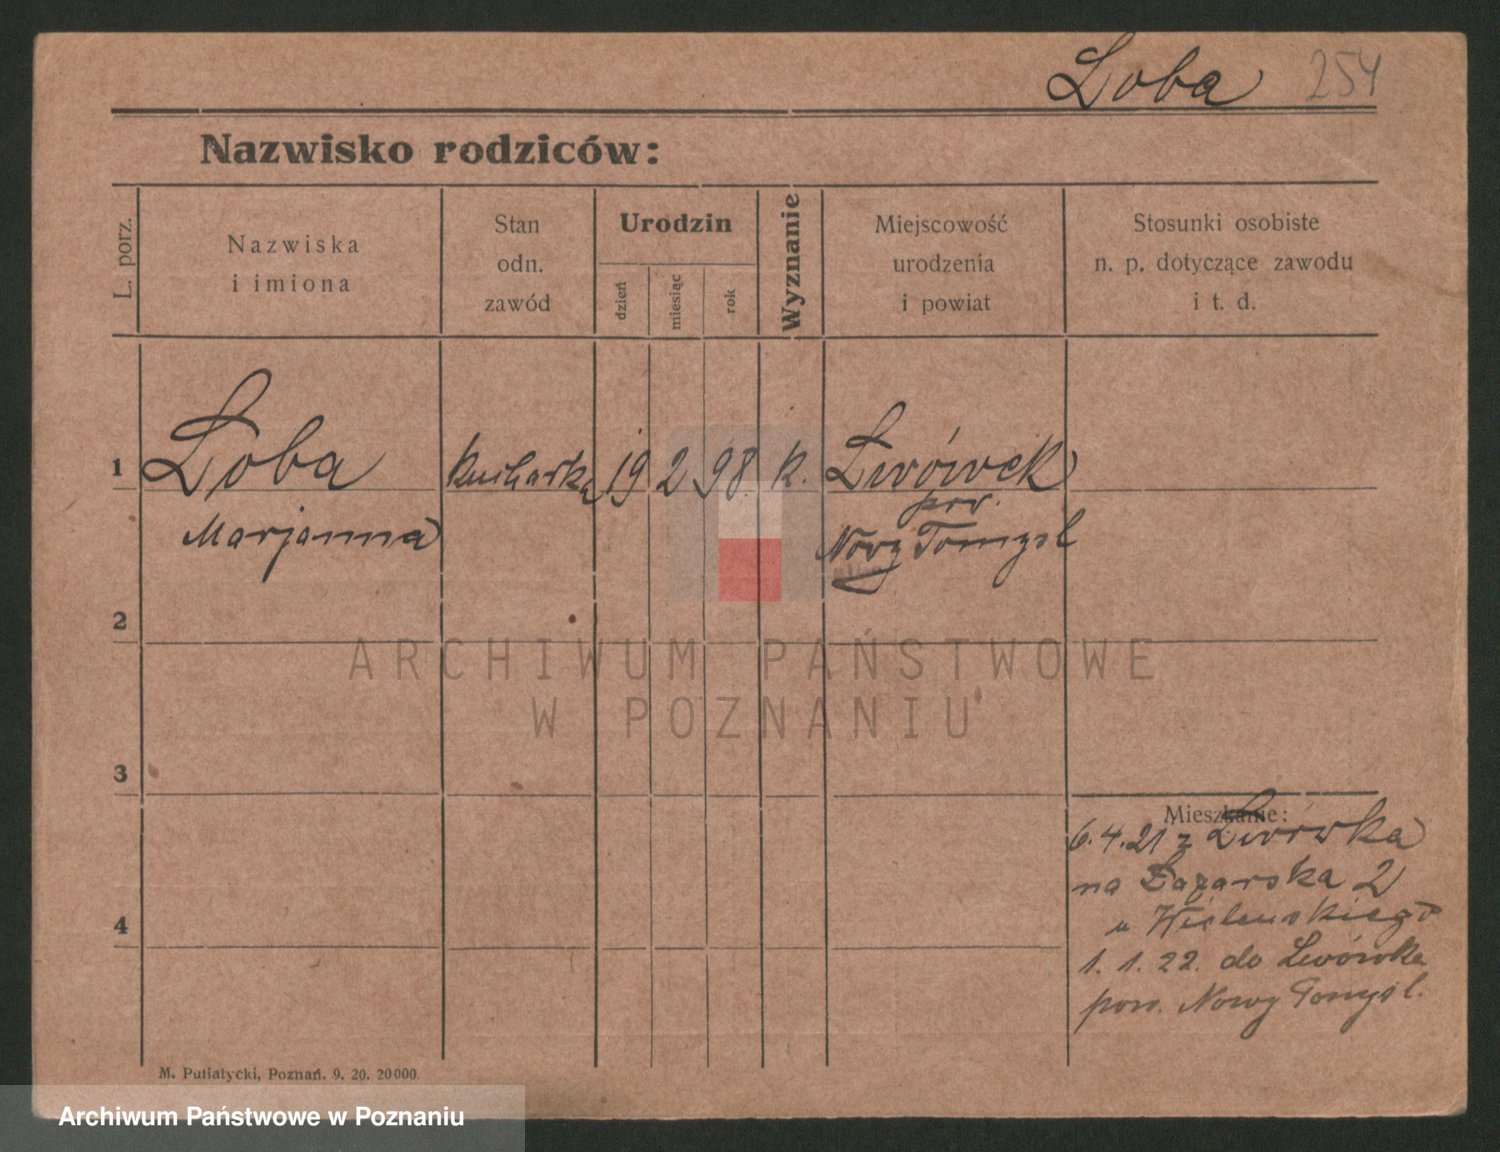 Loba 254
Nazwisko rodziców:
L. porz.
Nazwiska
i imiona
Stan
odn.
zawód
Urodzin
dzień
miesiąc
rok
Wyznanie
Miejscowość
urodzenia
i powiat
Stosunki osobiste
n. p. dotyczące zawodu
i t. d.
1 Loba kucharka 19 2 98. k. Lwówek
pow.
Marjanna Nowy Tomyśl
2
ARCHIWUM PAŃSTWOWE
W POZNANIU
3
Mieszkanie:
6.4.21 z Lwówka
na Łazarska 2
u Wielenskiego
4
1. 1. 22. do Lwówka
pow. Nowy Tomyśl.
M. Putiatycki, Poznań. 9. 20. 20000.
Archiwum Państwowe w Poznaniu